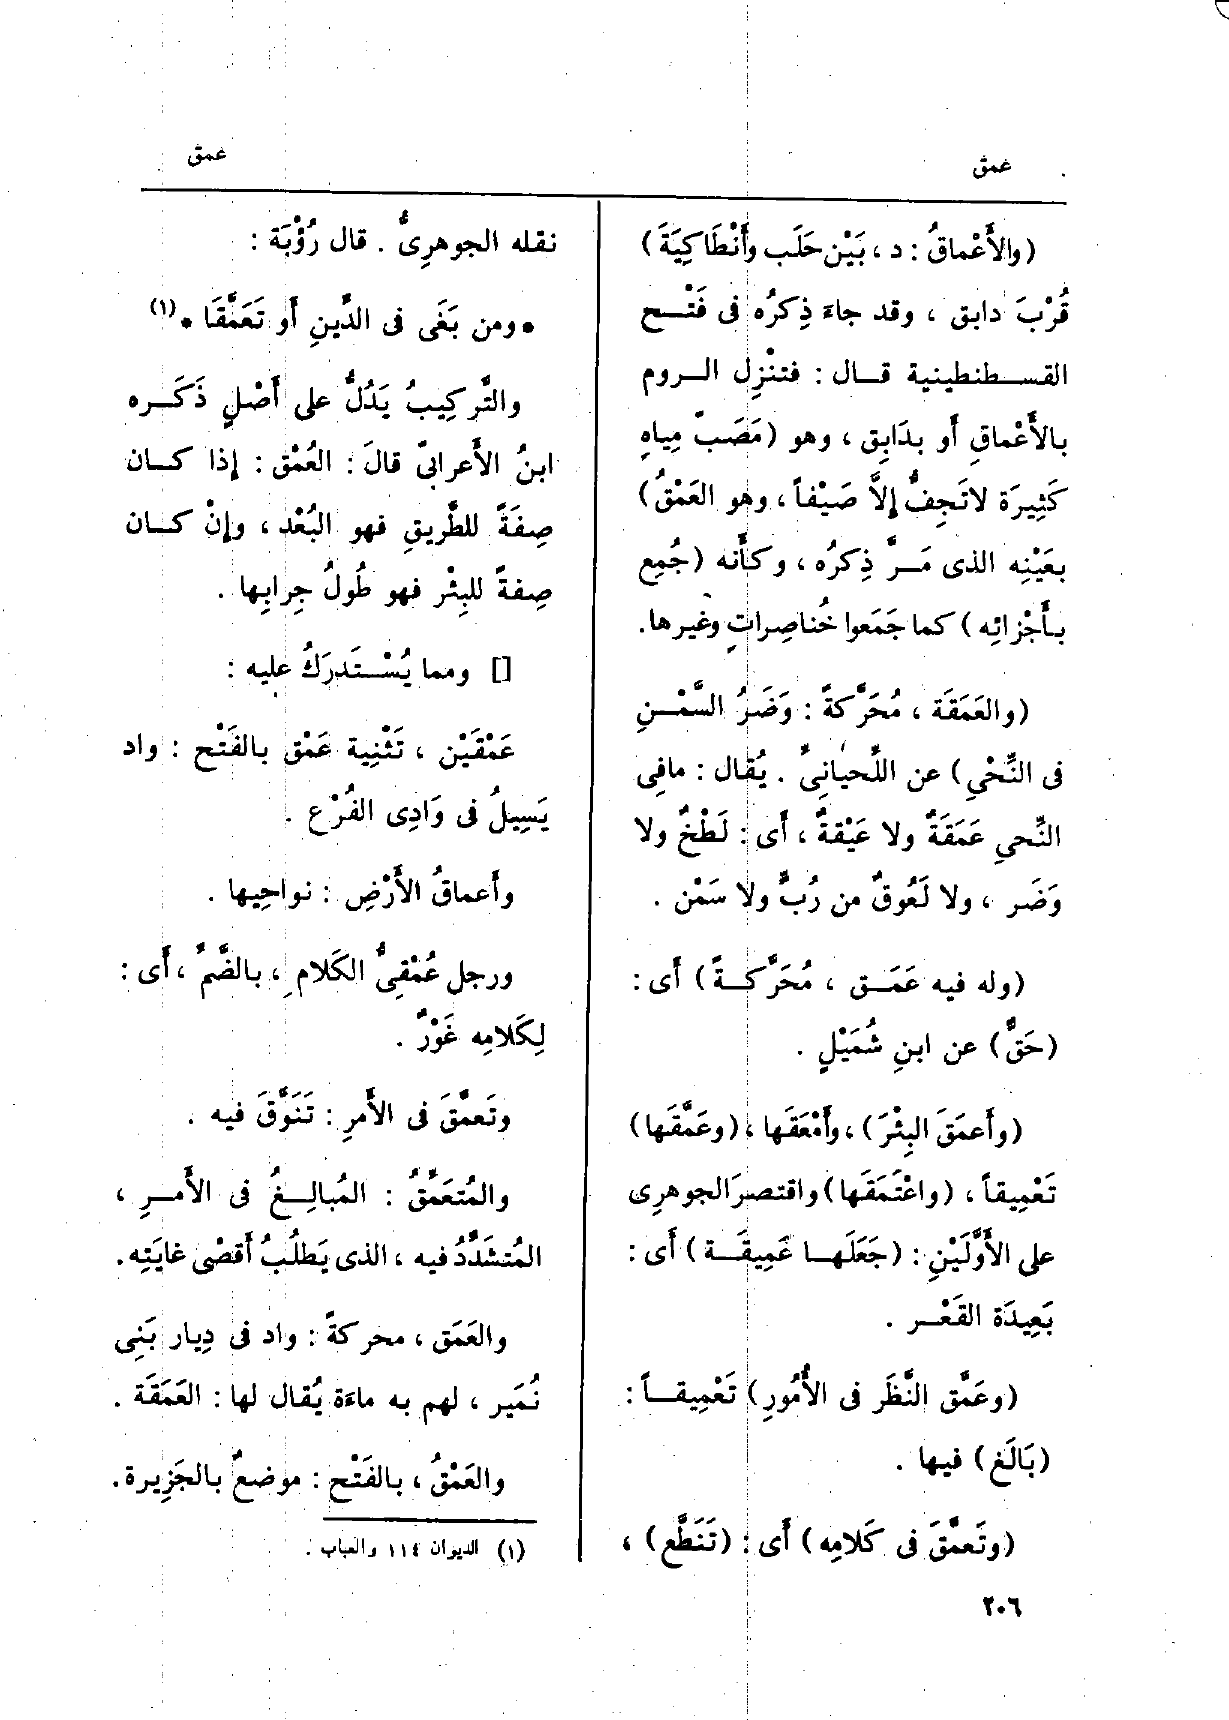 عمق
عمق
(والأَعْماقُ : د ، بَيْن حَلَب وأَنْطَاكِيَةَ)
قُرْبَ دابق ، وقد جاءَ ذِكرُه فى فَتْـح
القسـطنطينية قـال : فتنْزِل الـروم
بالأَعْماقِ أَو بدَابِق ، وهو (مَصَبّ مِياهِ
كَثِيرَة لاتَجِفُّ إِلاَّ صَيْفاً ، وهو العَمْقُ)
بعَيْنِه الذى مَـرَّ ذِكرُه ، وكأَنه (جُمِع
بـأَجْزائِه) كما جَمَعوا خُناصِراتٍ وغيرها.
(والعَمَقَة ، مُحَرَّكةً : وَضَرُ السَّمْـنِ
فى النِّحْىِ) عن اللِّحيانِىِّ . يُقال : مافِى
النِّحىِ عَمَقَةٌ ولا عَيْقةٌ ، أَى : لَطْخٌ ولا
وَضَر ، ولا لَعُوقٌ من رُبٍّ ولا سَمْن .
(وله فيه عَمَـق ، مُحَرَّكـةً) أَى :
(حَقٌّ) عن ابنِ شُمَيْلٍ .
(وأَعمَقَ البِئْرَ) ، وأَمْعَقَها ، (وعَمَّقَها)
تَعْمِيقاً ، (واعْتَمَقَها) واقتصرَ الجوهرِى
على الأَوَّلَيْنِ : (جَعَلَهـا عَمِيقَـة) أَى :
بَعِيدَة القَعْـر .
(وعَمَّق النَّظَر فى الأُمُورِ) تَعْمِيقـاً :
(بَالَغ) فيها .
(وتَعمَّقَ فى كَلامِه) أَى : (تَنَطَّع) ،
نقله الجوهرِىُّ . قال رُؤْبَة :
• ومن بَغَى فى الدِّينِ أَو تَعَمَّقَا • (١)
والتَّركِيبُ يَدُلُّ على أَصْلٍ ذَكَـره
ابنُ الأَعرابىّ قالَ : العُمْق : إِذا كـان
صِفَةً للطَّرِيقِ فهو البُعْد ، وإِنْ كـان
صِفةً للبِئْر فهو طُولُ جِرابِها .
[] ومما يُسْـتَدرَكُ عليه :
عَمْقَيْن ، تَثْنِية عَمْق بالفَتْح : واد
يَسِيلُ فى وَادِى الفُرْع .
وأَعماقُ الأَرْضِ : نواحِيها .
ورجل عُمْقِىُّ الكَلام ، بالضَّمِّ ، أَى :
لِكَلامِه غَوْرٌ .
وتَعمَّقَ فى الأَمرِ : تَنَوَّقَ فيه .
والمُتعَمِّقُ : المُبالِـغُ فى الأَمـرِ ،
المُتشَدِّدُ فيه ، الذى يَطلُبُ أَقصْى غايَتِه.
والعَمَق ، محركةً : واد فى دِيار بَنِى
نُمَير ، لهم به ماءَة يُقال لها : العَمَقَة .
والعَمْقُ ، بالفَتْح : موضعٌ بالجَزِيرة.
(١) الديوان ١١٤ والعباب .
٢٠٦